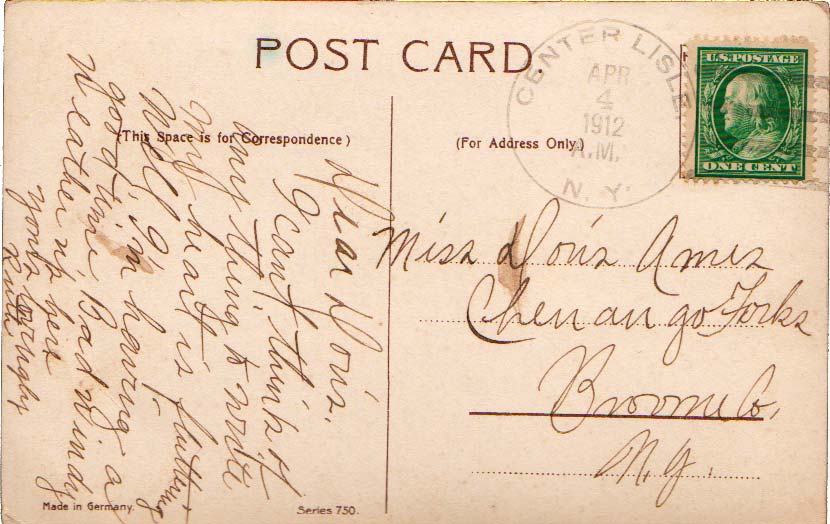 POST CARD.
(This Space is for Correspondence)
(For Address Only.)
CENTER LISLE
APR
4
1912
A.M.
N.Y.
U.S. POSTAGE
ONE CENT
Dear Doris.
I cant think of
any thing to write
My heart is flutting
Well I'm having a
good time Bad windy
Weather is here
Yours
Ruth
Miss Doris Ames
Chenango Forks
Broome Co,
N.Y.
Made in Germany.
Series 750.